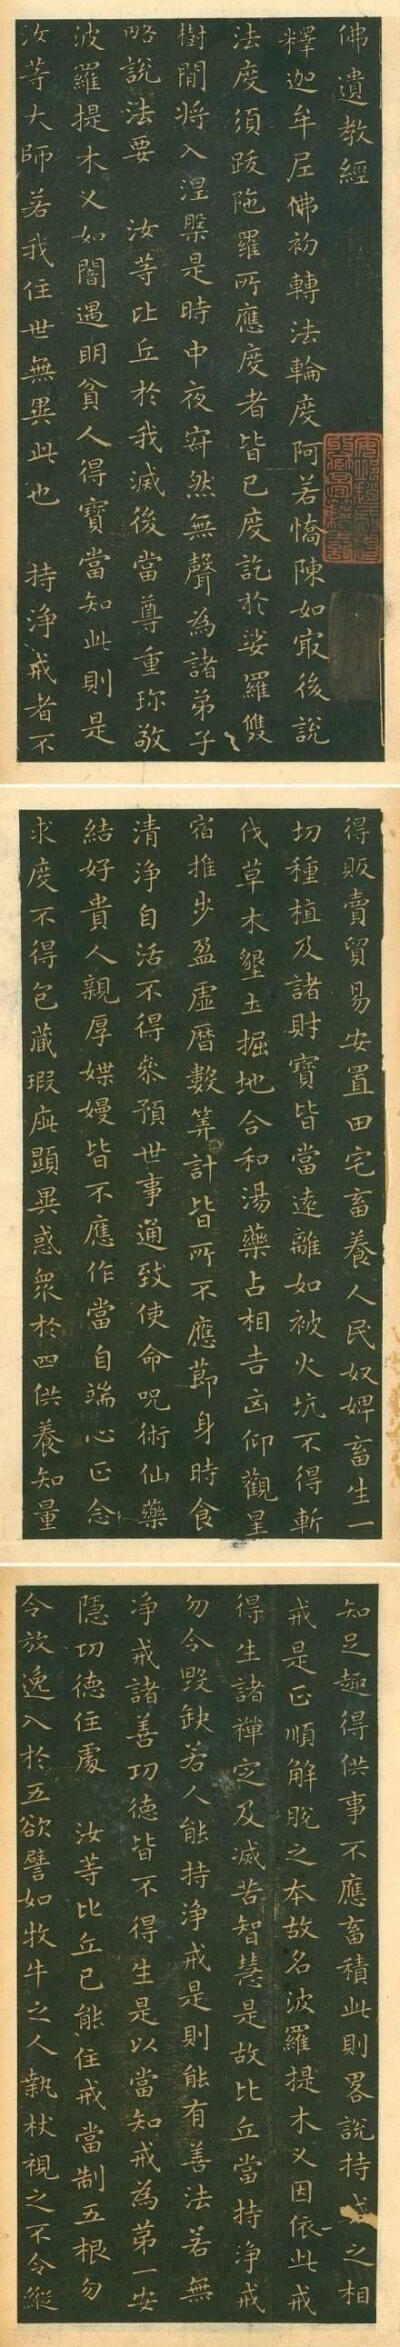 佛遺教經
釋迦牟尼佛初轉法輪度阿若憍陳如冣後說
法度須跋陁羅所應度者皆已度訖於娑羅雙
樹間將入涅槃是時中夜寂然無聲為諸弟子
略說法要 汝等比丘於我滅後當尊重珎敬
波羅提木叉如闇遇明貧人得寶當知此則是
汝等大師若我住世無異此也 持淨戒者不
得販賣貿易安置田宅畜養人民奴婢畜生一
切種植及諸財寶皆當遠離如被火坑不得斬
伐草木墾土掘地合和湯藥占相吉凶仰觀星
宿推步盈虛曆數筭計皆所不應節身時食
清淨自活不得叅預世事通致使命呪術仙藥
結好貴人親厚媟嫚皆不應作當自端心正念
求度不得包藏瑕疵顯異惑衆於四供養知量
知足趣得供事不應畜積此則畧說持戒之相
戒是正順解脫之本故名波羅提木叉因依此戒
得生諸禪定及滅苦智慧是故比丘當持淨戒
勿令毀缺若人能持淨戒是則能有善法若無
淨戒諸善功德皆不得生是以當知戒為第一安
隱功德住處 汝等比丘已能住戒當制五根勿
令放逸入於五欲譬如牧牛之人執杖視之不令縱